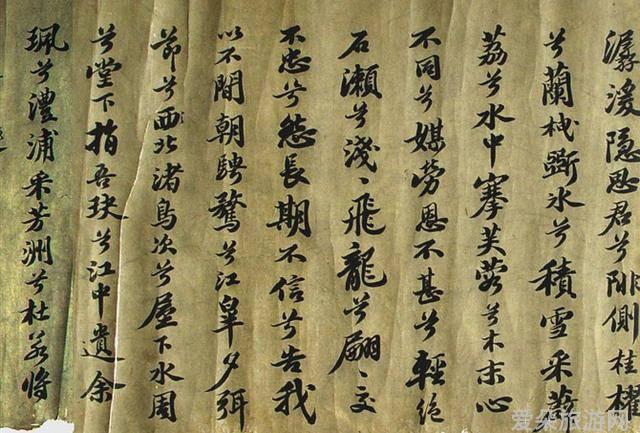 潺湲隱思君兮陫側桂櫂
兮蘭枻斲水兮積雪采薜
荔兮水中搴芙蓉兮木末心
不同兮媒勞恩不甚兮輕絕
石瀨兮淺〻飛龍兮翩〻交
不忠兮怨長期不信兮告我
以不閒朝騁騖兮江皋夕弭
節兮西北渚鳥次兮屋下水周
兮堂下捐吾玦兮江中遺余
珮兮澧浦采芳洲兮杜若將
爱朵旅游网